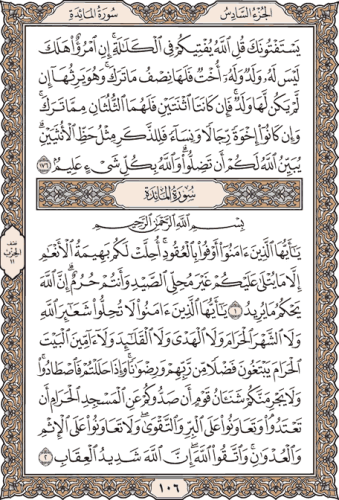 الجزء السادس سورة المائدة
يَسْتَفْتُونَكَ قُلِ ٱللَّهُ يُفْتِيكُمْ فِى ٱلْكَلَٰلَةِ ۚ إِنِ ٱمْرُؤٌا۟ هَلَكَ
لَيْسَ لَهُۥ وَلَدٌ وَلَهُۥٓ أُخْتٌ فَلَهَا نِصْفُ مَا تَرَكَ ۚ وَهُوَ يَرِثُهَآ إِن
لَّمْ يَكُن لَّهَا وَلَدٌ ۚ فَإِن كَانَتَا ٱثْنَتَيْنِ فَلَهُمَا ٱلثُّلُثَانِ مِمَّا تَرَكَ ۚ
وَإِن كَانُوٓا۟ إِخْوَةً رِّجَالًا وَنِسَآءً فَلِلذَّكَرِ مِثْلُ حَظِّ ٱلْأُنثَيَيْنِ ۗ
يُبَيِّنُ ٱللَّهُ لَكُمْ أَن تَضِلُّوا۟ ۗ وَٱللَّهُ بِكُلِّ شَىْءٍ عَلِيمٌۢ ١٧٦
سورة المائدة
بِسْمِ ٱللَّهِ ٱلرَّحْمَٰنِ ٱلرَّحِيمِ
يَٰٓأَيُّهَا ٱلَّذِينَ ءَامَنُوٓا۟ أَوْفُوا۟ بِٱلْعُقُودِ ۚ أُحِلَّتْ لَكُم بَهِيمَةُ ٱلْأَنْعَٰمِ
إِلَّا مَا يُتْلَىٰ عَلَيْكُمْ غَيْرَ مُحِلِّى ٱلصَّيْدِ وَأَنتُمْ حُرُمٌ ۗ إِنَّ ٱللَّهَ
يَحْكُمُ مَا يُرِيدُ ١ يَٰٓأَيُّهَا ٱلَّذِينَ ءَامَنُوا۟ لَا تُحِلُّوا۟ شَعَٰٓئِرَ ٱللَّهِ
وَلَا ٱلشَّهْرَ ٱلْحَرَامَ وَلَا ٱلْهَدْىَ وَلَا ٱلْقَلَٰٓئِدَ وَلَآ ءَآمِّينَ ٱلْبَيْتَ
ٱلْحَرَامَ يَبْتَغُونَ فَضْلًا مِّن رَّبِّهِمْ وَرِضْوَٰنًا ۚ وَإِذَا حَلَلْتُمْ فَٱصْطَادُوا۟ ۚ
وَلَا يَجْرِمَنَّكُمْ شَنَـَٔانُ قَوْمٍ أَن صَدُّوكُمْ عَنِ ٱلْمَسْجِدِ ٱلْحَرَامِ أَن
تَعْتَدُوا۟ ۘ وَتَعَاوَنُوا۟ عَلَى ٱلْبِرِّ وَٱلتَّقْوَىٰ ۖ وَلَا تَعَاوَنُوا۟ عَلَى ٱلْإِثْمِ
وَٱلْعُدْوَٰنِ ۚ وَٱتَّقُوا۟ ٱللَّهَ ۖ إِنَّ ٱللَّهَ شَدِيدُ ٱلْعِقَابِ ٢
نصف
الحزب
١١
١٠٦